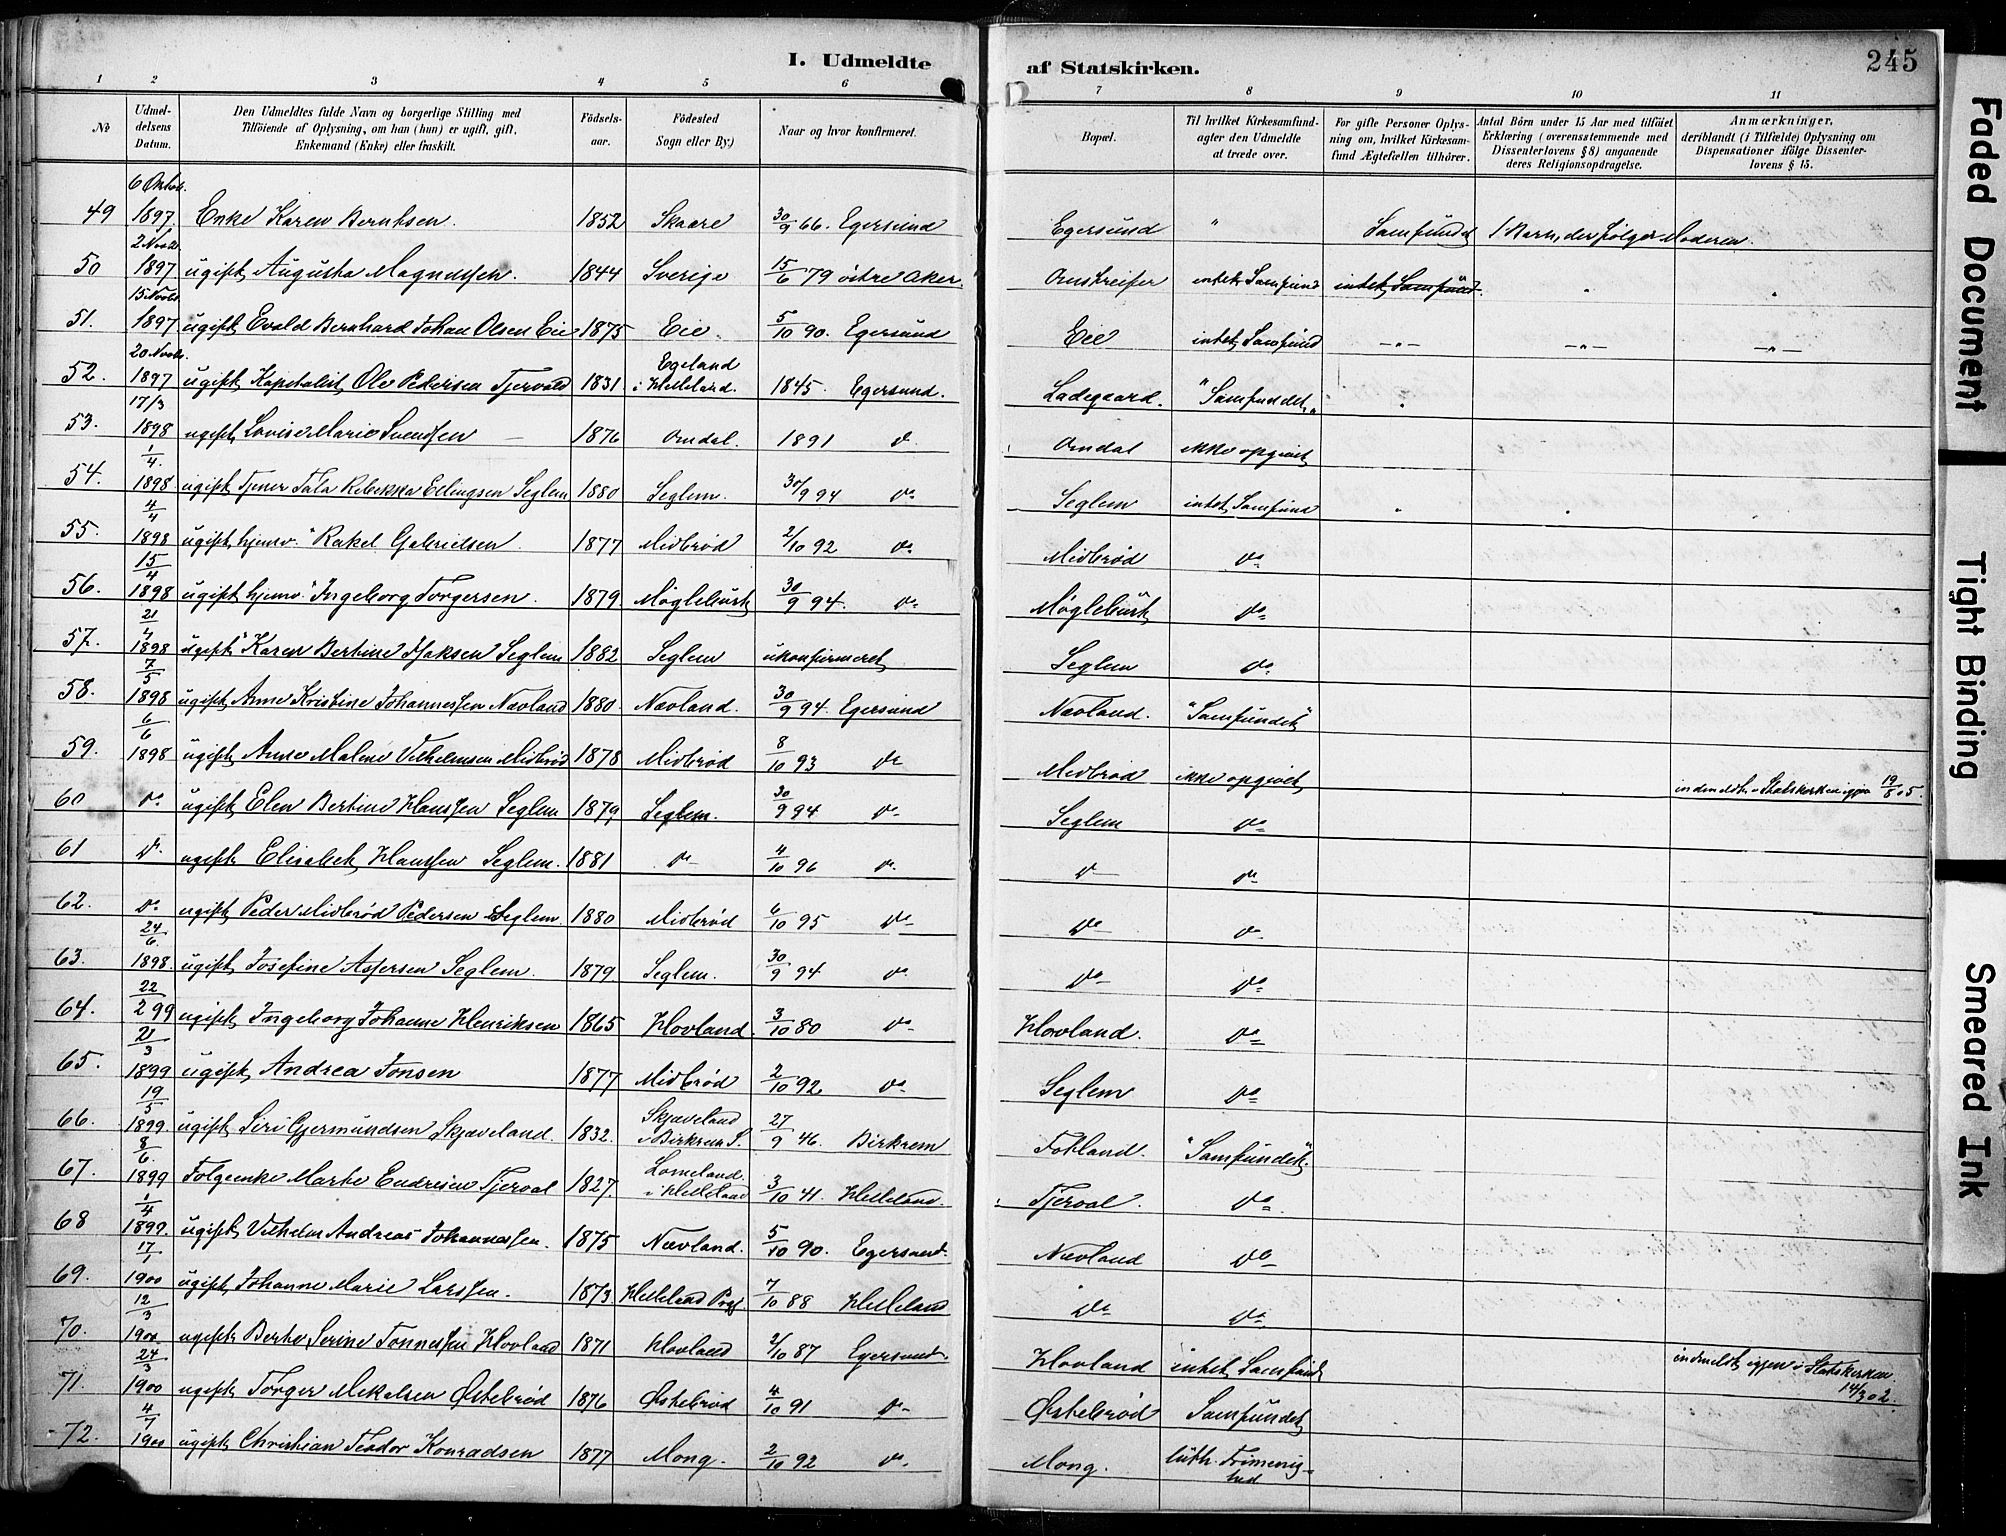 I. Udmeldte af Statskirken.
245
1 2 3 4 5 6 7 8 9 10 11
№
Udmeldelsens Datum.
Den Udmeldtes fulde Navn og borgerlige Stilling med Tilföiende af Oplysning, om han (hun) er ugift, gift, Enkemand (Enke) eller fraskilt.
Födsels-aar.
Födested Sogn eller By.)
Naar og hvor konfirmeret.
Bopæl.
Til hvilket Kirkesamfund agter den Udmeldte at træde over.
For gifte Personer Oplysning om, hvilket Kirkesamfund Ægtefællen tilhörer.
Antal Börn under 15 Aar med tilföiet Erklæring (overensstemmende med Dissenterlovens § 8) angaaende deres Religionsopdragelse.
Anmærkninger, deriblandt (i Tilfælde) Oplysning om Dispensationer ifölge Dissenterlovens § 15.
49 6 Oktob. 1897 Enke Karen Berntsen. 1852 Skaare 30/9 66. Egersund Egersund " Samfundet 1 Barn, der følger Moderen.
50 2 Novbr. 1897 ugift Augusta Magnussen. 1844 Sverige 15/6 79 östre Aker. Omstreifer intet Samfund intet Samfund. " "
51. 15 Novbr. 1897 ugift Evald Bernhard Johan Olsen Eie 1875 Eie. 5/10 90. Egersund Eie intet Samfund —"— —"— —"—
52. 20 Novbr. 1897 ugift Kapitalist Ole Pedersen Tjervald 1831 Egeland i Helleland. 1845. Egersund. Ladegaard. "Samfundet" "
53. 17/3 1898 ugift Lovise Marie Svendsen — 1876 Omdal. 1891 d. Omdal ikke opgivet
54. 1/4. 1898 ugift Tjener Tala Rebekka Ellingsen Seglem 1880 Seglem. 30/9 94 do Seglem intet Samfund " "
55. 4/4 1898 ugift, hjemv. Rakel Gabrielsen. 1877 Midbrød 2/10 92 do. Midbrød do.
56. 15/4 1898 ugift hjemv. Ingeborg Torgersen. 1879. Møglebust 30/9 94. do. Møglebust do.
57. 21/4 1898 ugift Karen Bertine Isaksen Seglem 1882 Seglem ukonfirmeret Seglem do.
58. 7/5 1898 ugift Anne Kristine Johannessen Nævland 1880. Nævland. 30/9 94. Egersund Nævland. "Samfundet"
59. 6/6 1898 ugift Anne Malene Vilhelmsen Midbrød 1878 Midbrød 8/10 93 do Midbrød ikke opgivet indmeldt i Statskirken igjen 19/8 05.
60 do. ugift Elen Bertine Hanssen Seglem 1879 Seglem. 30/9 94 do. Seglem do.
61 do. ugift Elisabet Hanssen Seglem. 1881 do 4/10 96 do. do do
62. do. ugift Peder Midbrød Pedersen Seglem. 1880 Midbrød 6/10 95 do do do.
63. 24/6. 1898. ugift Josefine Aspersen Seglem. 1879. Seglem. 30/9 94 do. do do.
64. 22/2 99 ugift Ingeborg Johanne Henriksen 1865 Hovland. 3/10 80 do Hovland. do
65. 21/3 1899 ugift Andrea Jonsen 1877 Midbrød 2/10 92 do Seglem do
66. 19/5 1899. ugift Siri Gjermundsen Skjæveland. 1832. Skjæveland i Birkrem S. 27/9 46. Birkrem Fotland. "Samfundet".
67. 8/6. 1899 Folgeenke Marte Endresen Tjerval 1827 Lomeland. i Helleland 3/10 41. Helleland. Tjerval. do
68 1/4 1899. ugift Vilhelm Andreas Johannessen. 1875 Nævland. 5/10 90. Egersund. Nævland do
69. 17/1 1900 ugift Johanne Marie Larssen. 1873 Helleland Præf. 7/10 88 Helleland do do.
70. 12/3 1900 ugift Berte Serine Tonnessen Hovland 1871 Hovland 2/10 87 Egersund. Hovland intet Samfund indmeldt igjen i Statskirken 14/3 02.
71. 24/3 1900 ugift Torger Mikalsen Østebrød 1876 Østebrød 4/10 91 do Østebrød Samfundet
72. 4/7 1900 ugift Christian Teodor Konradsen 1877 Mong. 2/10 92 do. Mong. luth. Frimenighed
Faded Document
Tight Binding
Smeared Ink